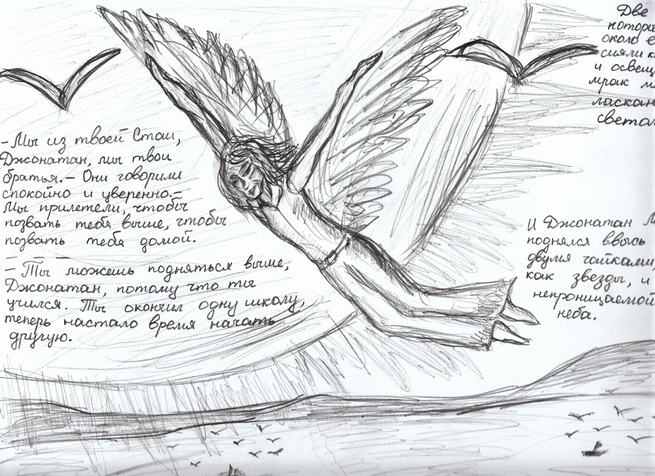 - Мы из твоей Стаи,
Джонатан, мы твои
братья. - Они говорили
спокойно и уверенно. -
Мы прилетели, чтобы
позвать тебя выше, чтобы
позвать тебя домой.
- Ты можешь подняться выше,
Джонатан, потому что ты
учился. Ты окончил одну школу,
теперь настало время начать
другую.
Две
около
сияли
и
мрак
светом
И Джонатан
поднялся ввысь
двумя чайками,
как звезды, и
непроницаемой
неба.